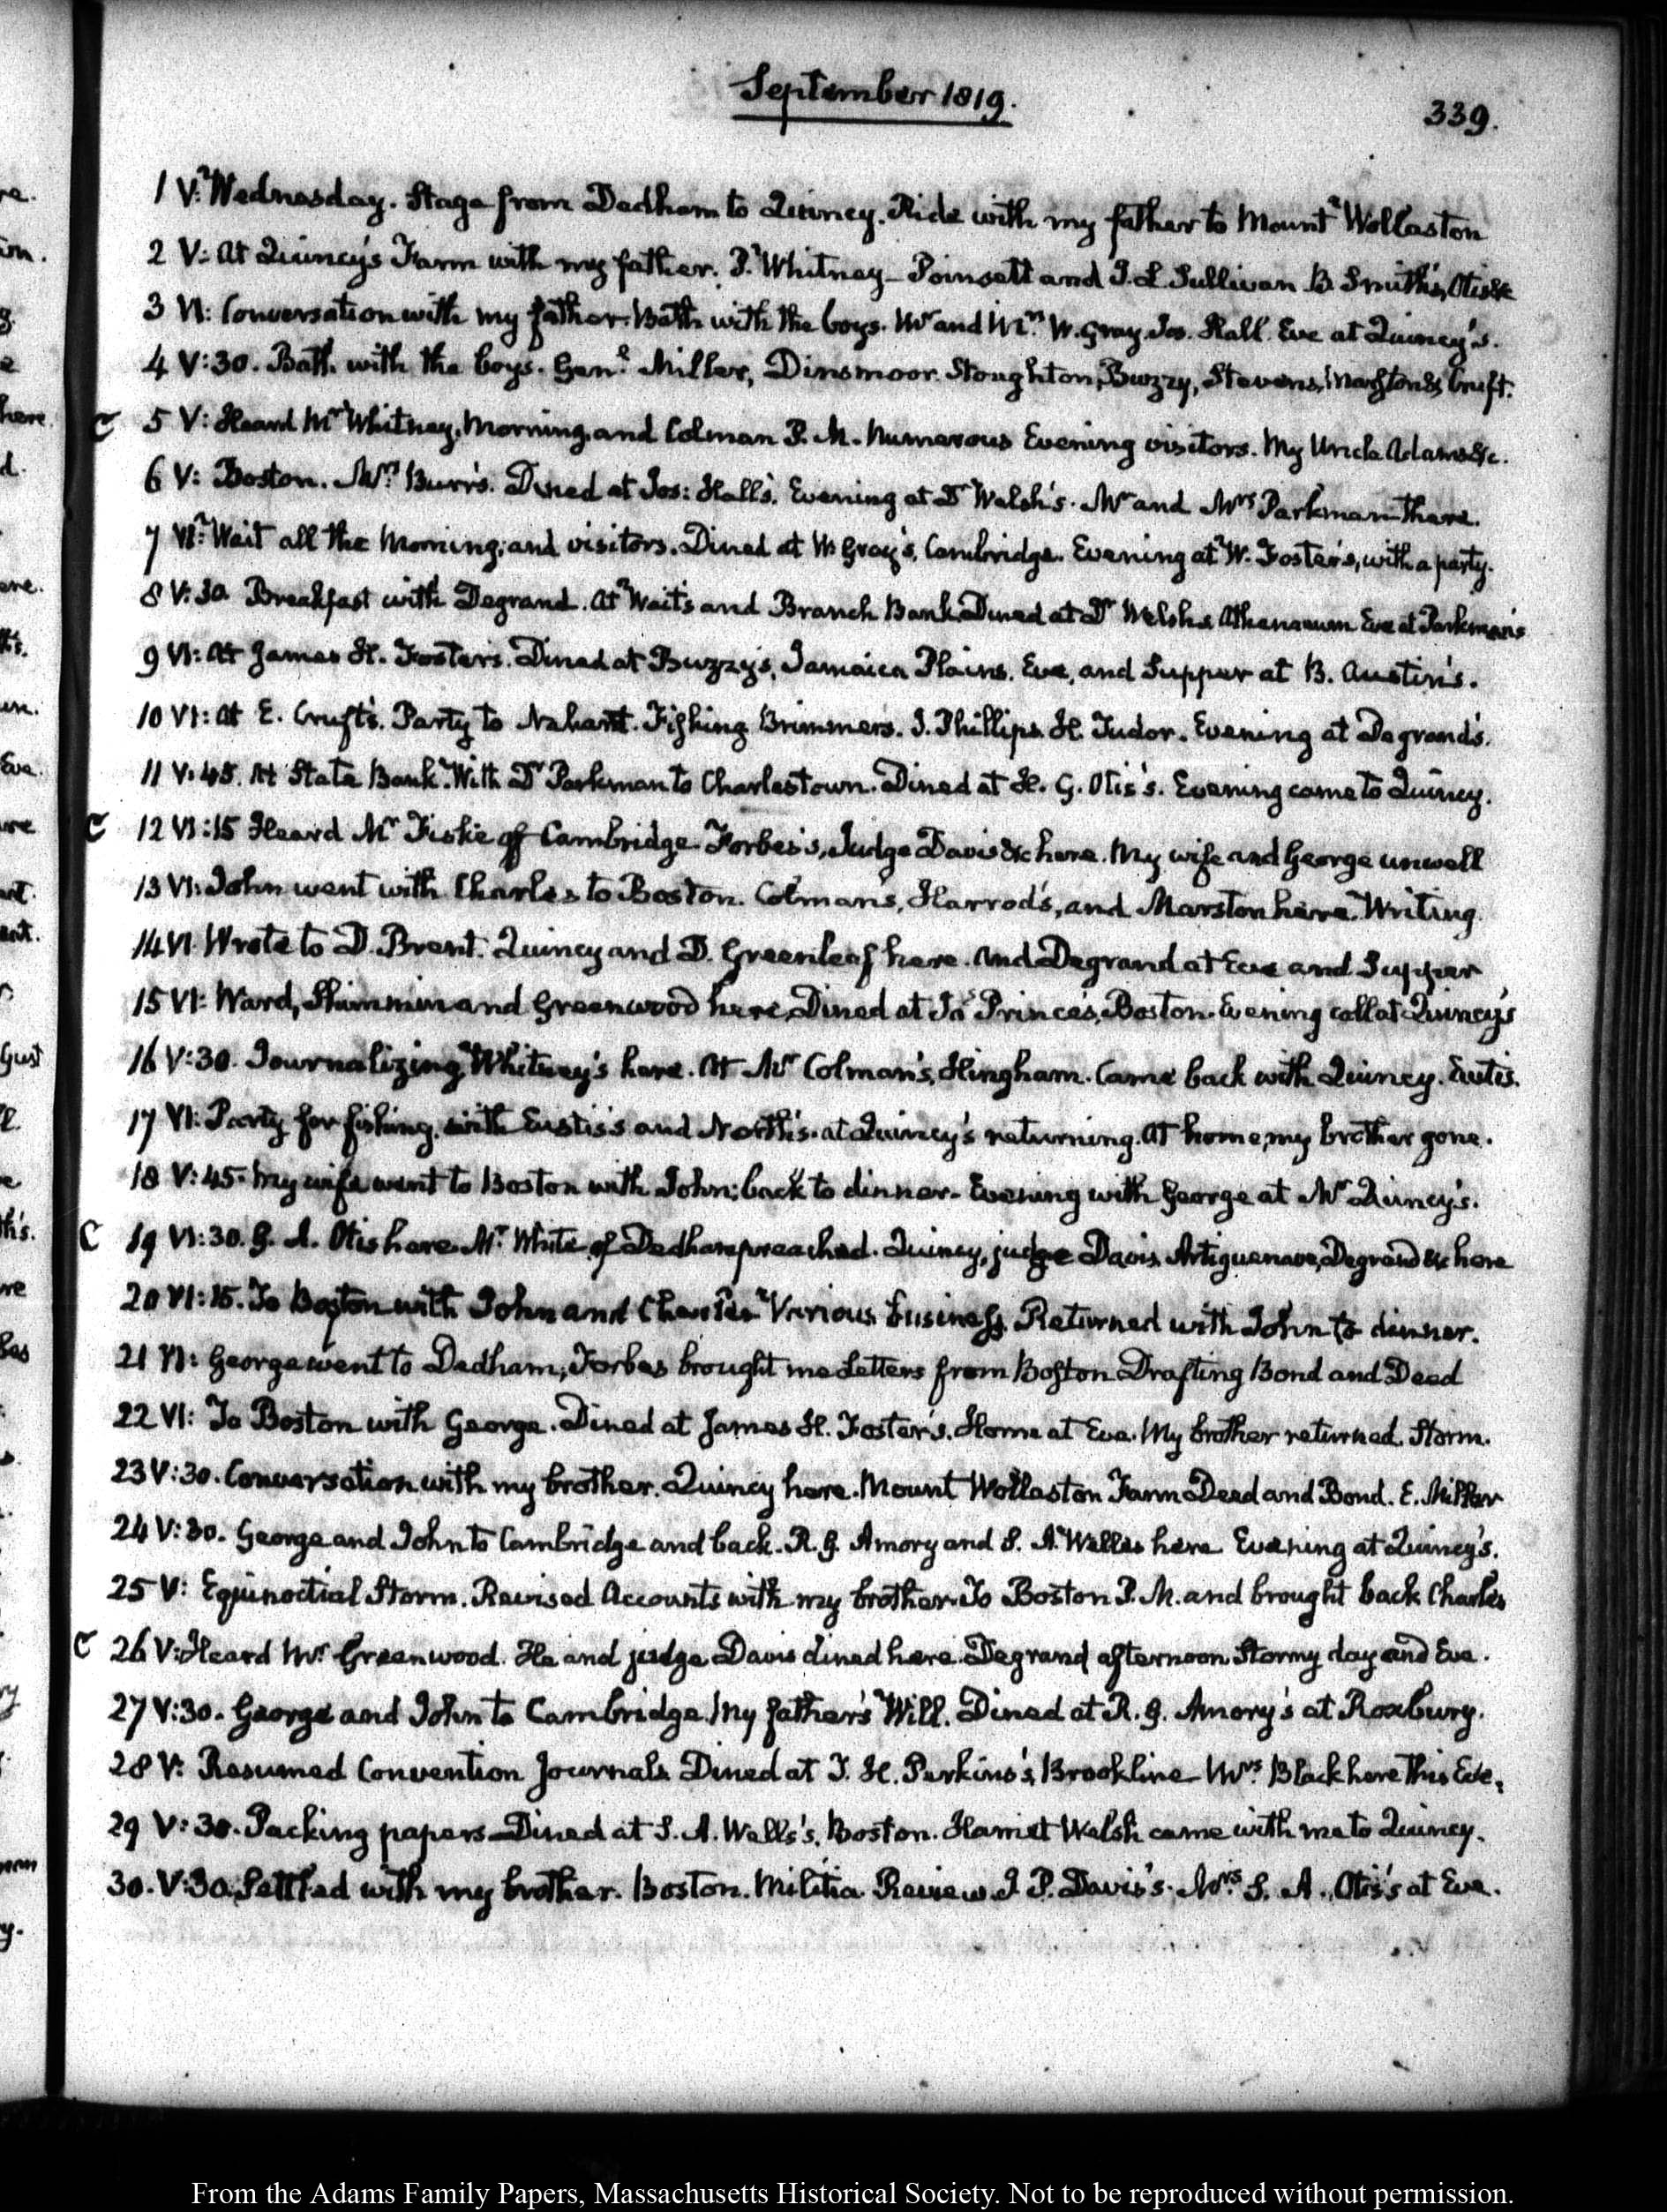 September 1819.
339.
1 V: Wednesday. Stage from Dedham to Quincy. Ride with my father to Mount Wollaston
2 V: At Quincy's Farm with my father. P. Whitney - Poinsett and J. L. Sullivan B. Smith's, Otis &c
3 VI: Conversation with my father. Bath with the boys. Mr and Mrs. W. Gray Jos. Hall. Eve at Quincy's.
4 V:30. Bath with the boys. Genl. Miller, Dinsmoor. Stoughton, Buzzy, Stevens, Marston &c Cruft.
C 5 V: Heard Mr Whitney, Morning, and Colman P. M. Numerous Evening visitors. My Uncle Adams &c.
6 V: Boston. Mrs. Burr's. Dined at Jos: Hall's. Evening at Dr Welsh's. Mr and Mrs Parkman there.
7 VI: Wait all the Morning, and visitors. Dined at W. Gray's, Cambridge. Evening at W. Foster's, with a party.
8 V:30 Breakfast with Degrand. At Wait's and Branch Bank. Dined at Dr Welsh's Athenaeum Eve at Parkman's
9 VI: At James H. Foster's. Dined at Buzzy's, Jamaica Plains. Eve, and Supper at B. Austin's.
10 VI: At E. Cruft's. Party to Nahant. Fishing Brimmers. J. Phillips. H. Tudor. Evening at Degrand's.
11 V:45. At State Bank. With Dr Parkman to Charlestown. Dined at H. G. Otis's. Evening came to Quincy.
C 12 VI:15 Heard Mr Fiske of Cambridge. Forbes's, Judge Davis &c here. My wife and George unwell
13 VI: John went with Charles to Boston. Colman's, Harrod's, and Marston here. Writing.
14 VI. Wrote to D. Brent. Quincy and D. Greenleaf here. And Degrand at Eve and Supper
15 VI: Ward, Shimmin and Greenwood here, Dined at Prince's, Boston. Evening call at Quincy's
16 V:30. Journalizing, Whitney's here. At Mr Colman's, Hingham. Came back with Quincy.
17 VI: Party for fishing, with Eustis's and North's. at Quincy's returning. At home, my brother gone.
18 V:45. My wife went to Boston with John; back to dinner. Evening with George at Mr Quincy's.
C 19 VI:30. G. A. Otis here. Mr. White of Dedham preached. Quincy, judge Davis, Artiguenave, Degrand &c here
20 VI:15. To Boston with John and Charles Various business. Returned with John to dinner.
21 VI: George went to Dedham; Forbes brought me Letters from Boston Drafting Bond and Deed
22 VI: To Boston with George. Dined at James H. Foster's. Home at Eve. My brother returned. Storm.
23 V:30. Conversation with my brother. Quincy here. Mount Wollaston Farm Deed and Bond. E. Miller
24 V:30. George and John to Cambridge and back. R. G. Amory and S. A. Welles here Evening at Quincy's.
25 V: Equinoctial Storm. Revised Accounts with my brother. To Boston P. M. and brought back Charles
C 26 V: Heard Mr. Greenwood. He and judge Davis dined here. Degrand afternoon Stormy day and Eve.
27 V:30. George and John to Cambridge. My father's Will. Dined at R. G. Amory's at Roxbury.
28 V: Resumed Convention Journals. Dined at T. H. Perkins's, Brookline Mrs. Black here this Eve.
29 V:30. Packing papers. Dined at S. A. Wells's, Boston. Harriet Welsh came with me to Quincy.
30. V:30. Settled with my brother. Boston. Militia Review. J. P. Davis's. Mrs S. A. Otis's at Eve.
From the Adams Family Papers, Massachusetts Historical Society. Not to be reproduced without permission.